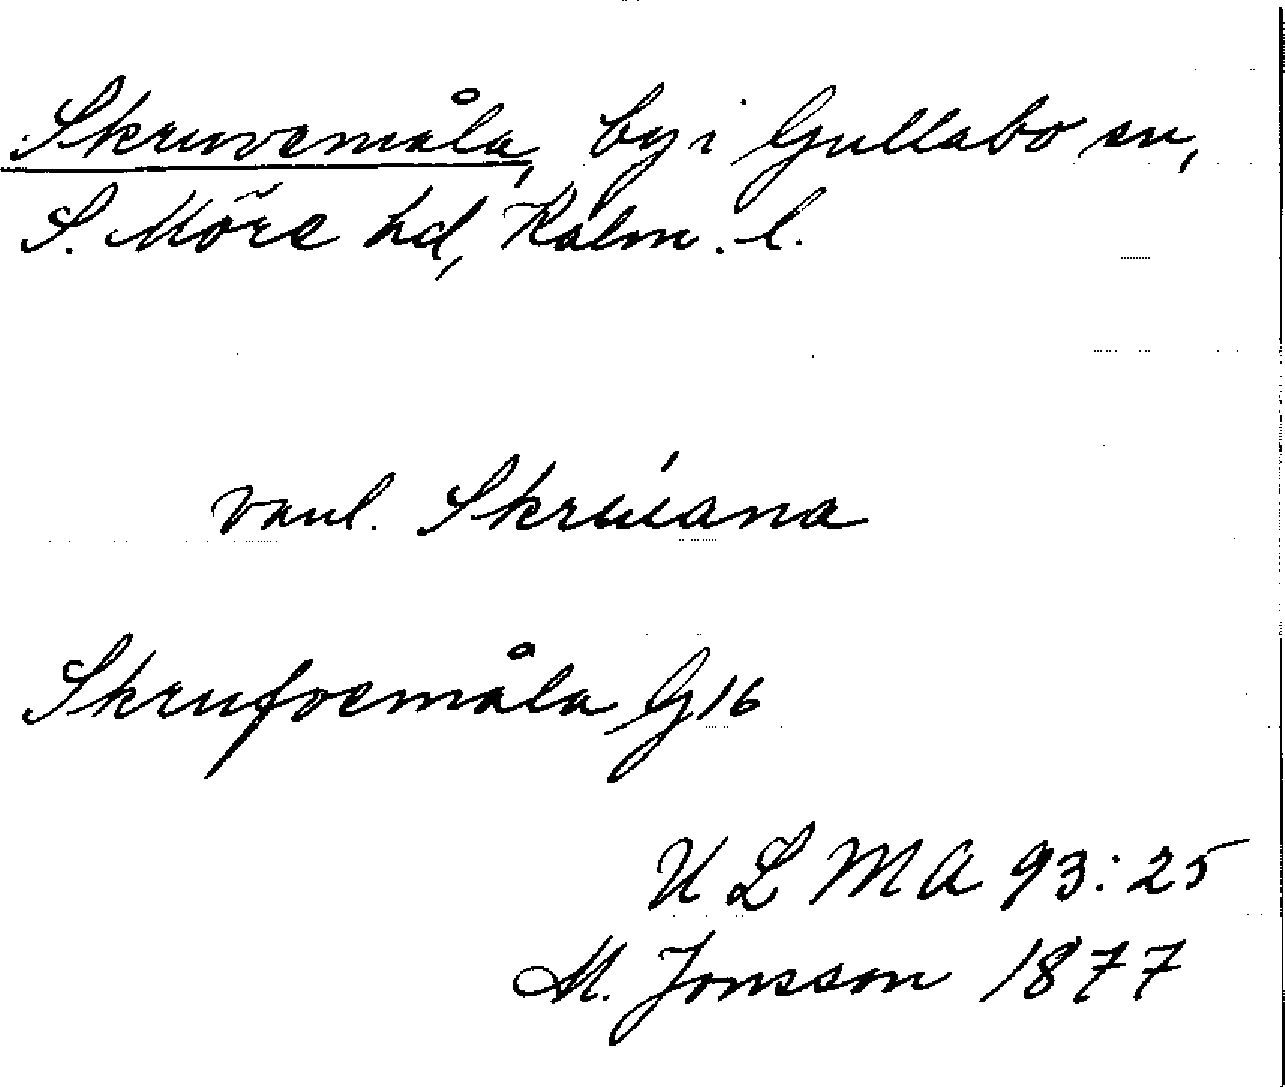 Skruvemåla, by i Gullabo sn,
S. Möre hd, Kalm. l.
vanl. Skruana
Skrufvemåla G16
ULMA 93:25
M. Jonsson 1877